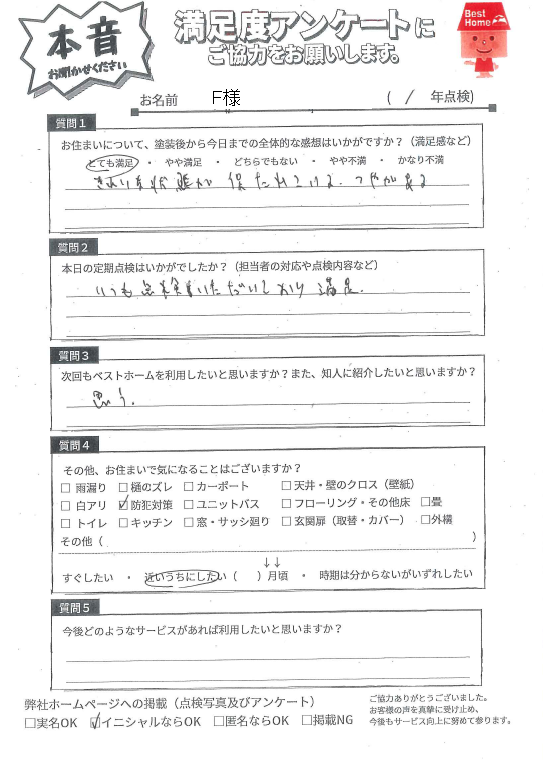 本音
お聞かせください
満足度アンケートに
ご協力をお願いします。
Best Home
お名前 F様 ( / 年点検)
質問1
お住まいについて、塗装後から今日までの全体的な感想はいかがですか?(満足感など)
とても満足 ・ やや満足 ・ どちらでもない ・ やや不満 ・ かなり不満
きれいな状態が保たれている。つやがある
質問2
本日の定期点検はいかがでしたか?(担当者の対応や点検内容など)
いつも点検いただいており満足.
質問3
次回もベストホームを利用したいと思いますか?また、知人に紹介したいと思いますか?
思う.
質問4
その他、お住まいで気になることはございますか?
□ 雨漏り □ 樋のズレ □ カーポート □ 天井・壁のクロス(壁紙)
□ 白アリ ☑ 防犯対策 □ ユニットバス □ フローリング・その他床 □畳
□ トイレ □ キッチン □ 窓・サッシ廻り □ 玄関扉(取替・カバー) □外構
その他( )
↓↓
すぐしたい ・ 近いうちにしたい( )月頃 ・ 時期は分からないがいずれしたい
質問5
今後どのようなサービスがあれば利用したいと思いますか?
弊社ホームページへの掲載(点検写真及びアンケート)
□実名OK ☑イニシャルならOK □匿名ならOK □掲載NG
ご協力ありがとうございました。
お客様の声を真摯に受け止め、
今後もサービス向上に努めて参ります。